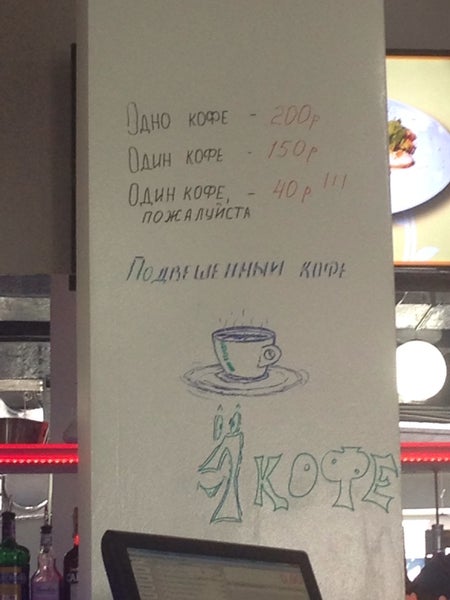 Одно кофе - 200р
Один кофе - 150р
Один кофе, - 40р !!!
пожалуйста
Подвешенный кофе
Я кофе